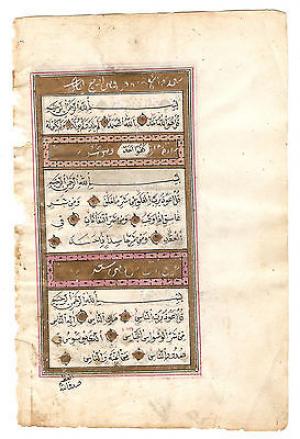 بسم الله الرحمن الرحيم
قل هو الله احد الله الصمد لم يلد ولم يولد ولم يكن له
بسم الله الرحمن الرحيم
قل اعوذ برب الفلق من شر ما خلق ومن شر
غاسق اذا وقب ومن شر النفاثات في
العقد ومن شر حاسد اذا حسد
بسم الله الرحمن الرحيم
قل اعوذ برب الناس ملك الناس اله الناس
من شر الوسواس الخناس الذي يوسوس في
صدور الناس من الجنة والناس